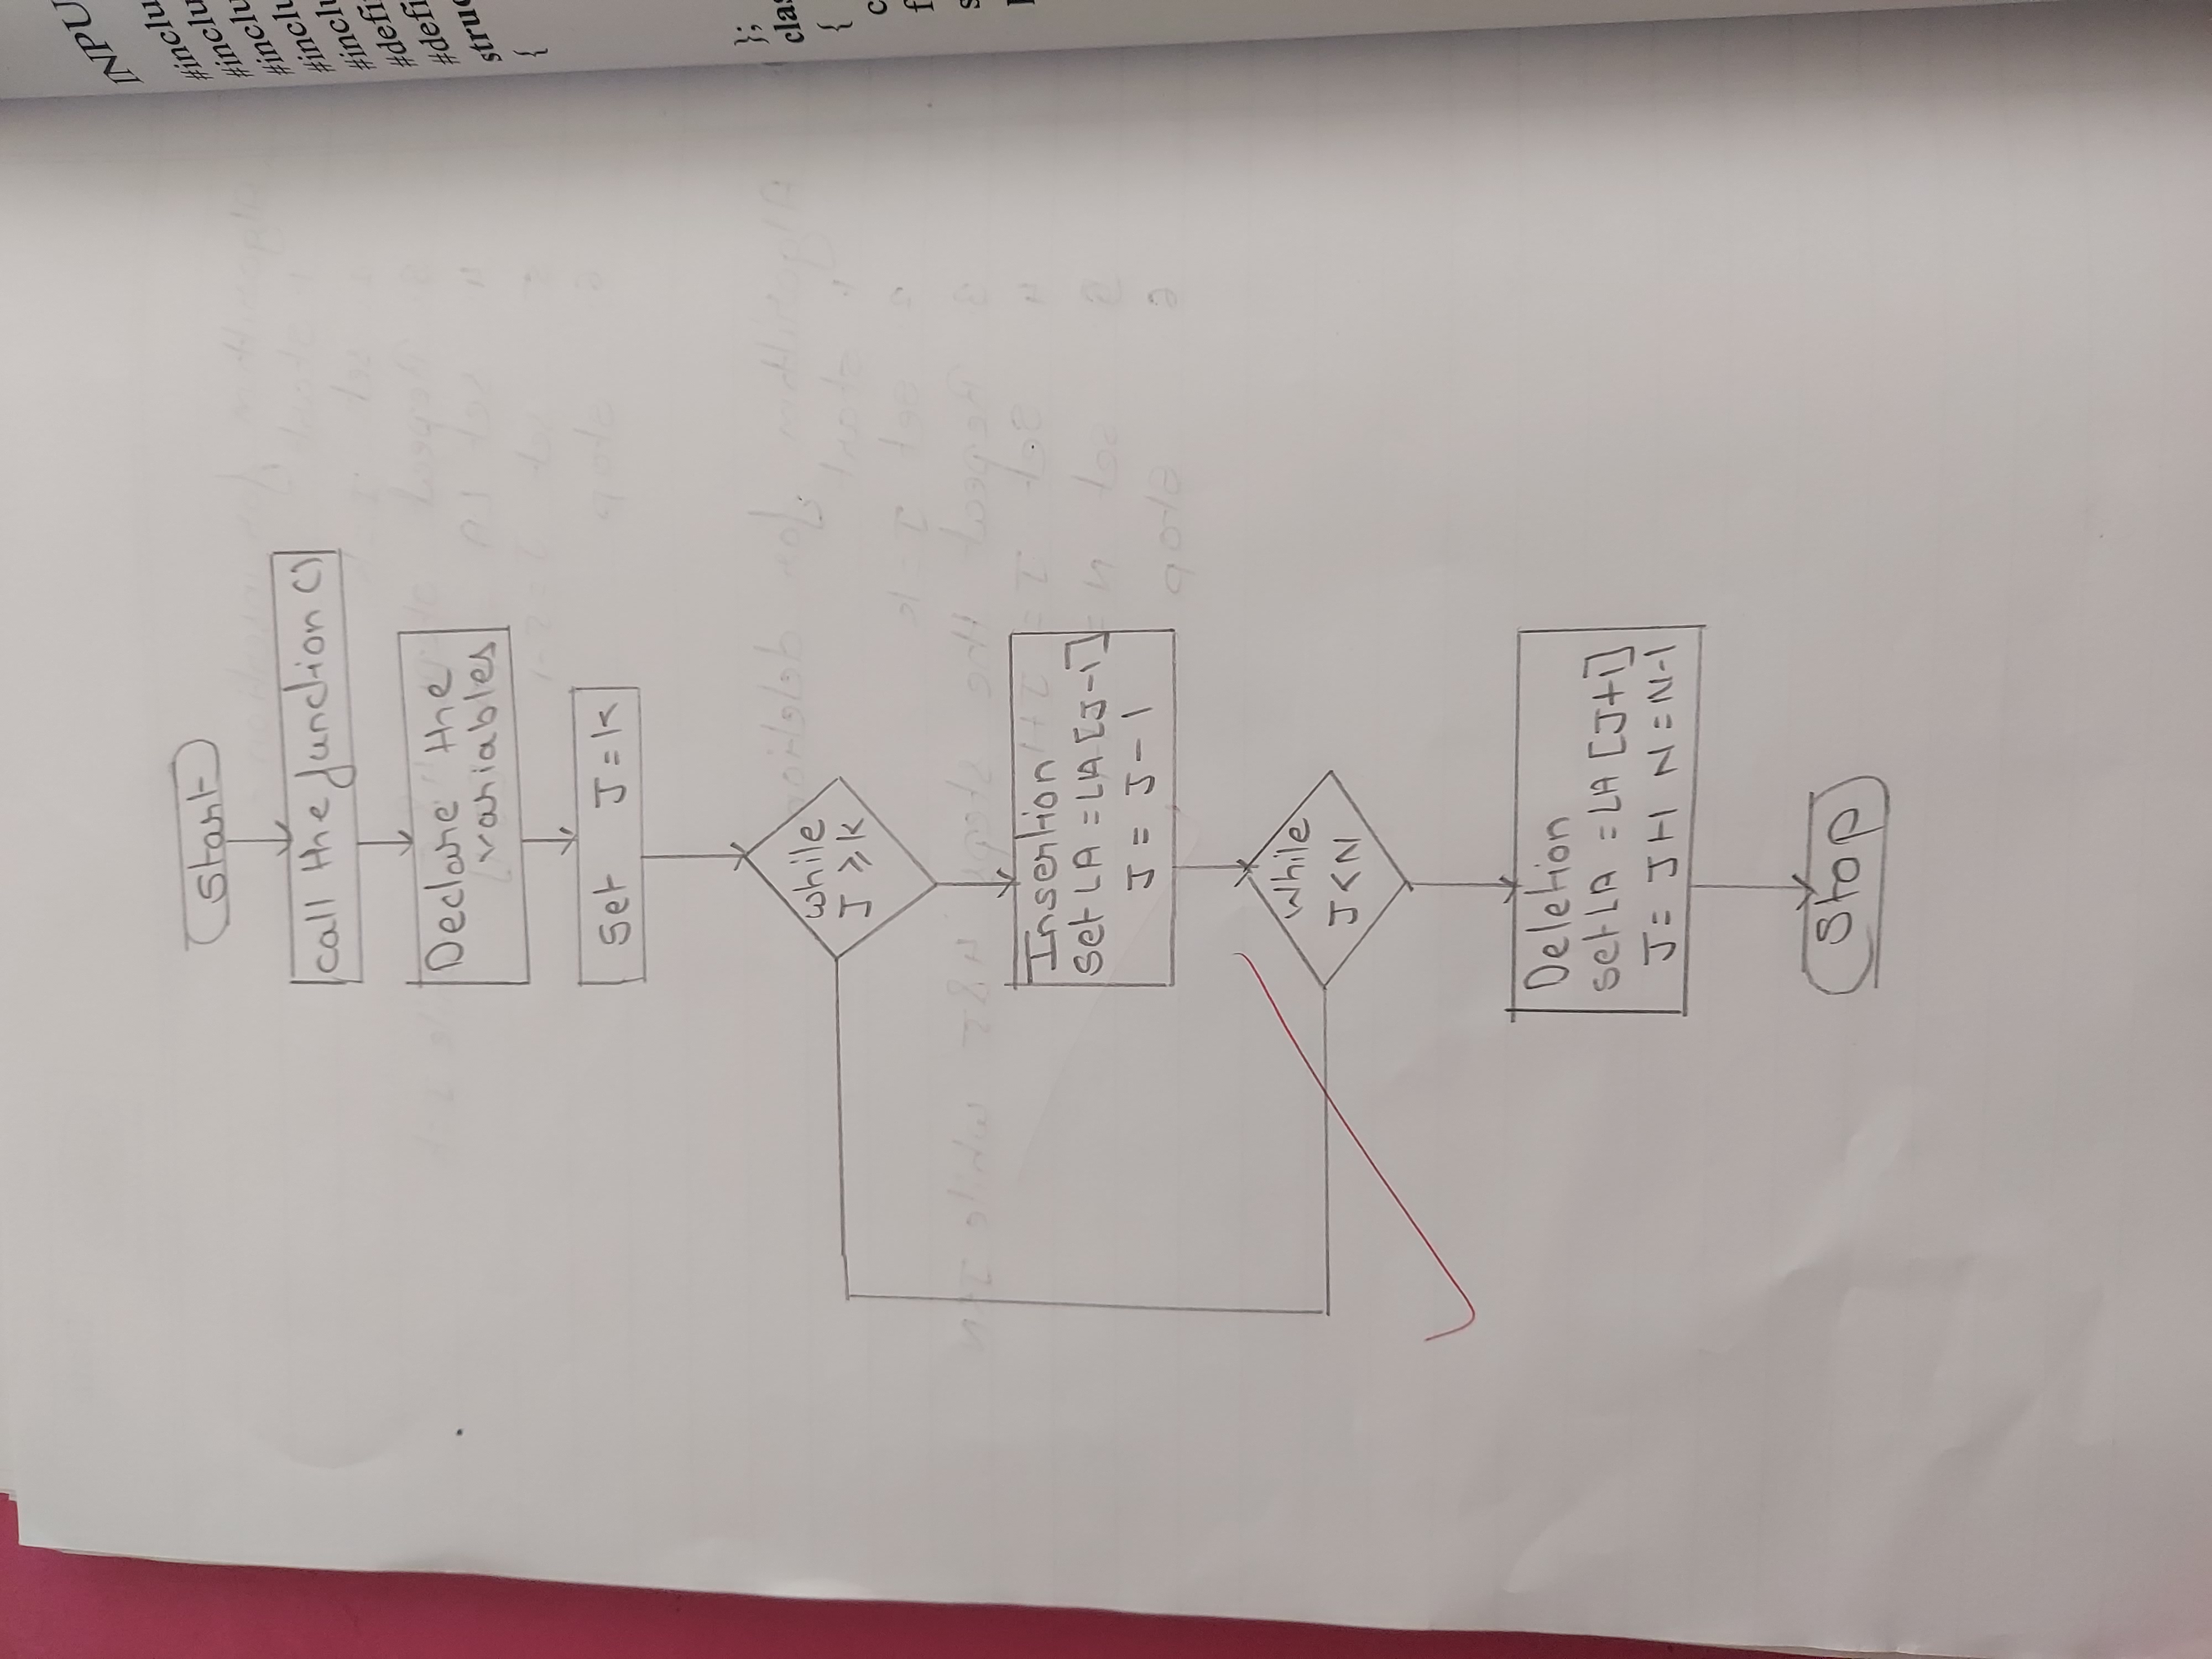 Start
call the function ()
Declare the
variables
Set J=K
while
J ⩾ K
Insertion
Set LA = LA [J-1]
J = J-1
While
J<N
Deletion
set LA = LA [J+1]
J= J+1 N=N-1
Stop
INPU
#inclu
#inclu
#inclu
#inclu
#inclu
#defi
#defi
struc
{
};
clas
{
c
f
s